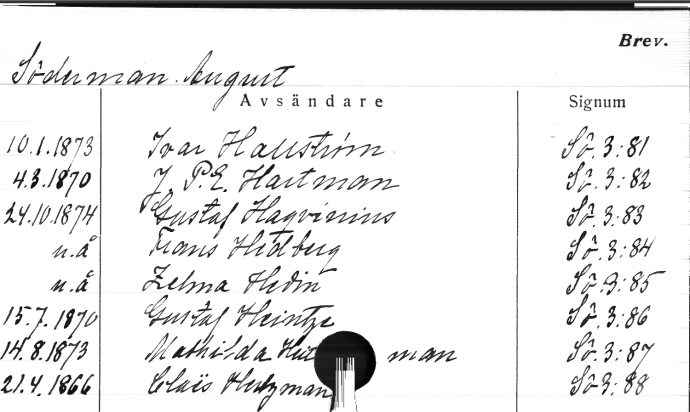 Brev.
Söderman August
Avsändare Signum
10.1.1873 Ivar Hallström Sö. 3:81
4.3.1870 J. P. E. Hartman Sö. 3:82
24.10.1874 Gustaf Hagvinius Sö. 3:83
u.å Frans Hedberg Sö. 3:84
u.å Zelma Hedin Sö. 3:85
15.7.1870 Gustaf Heintze Sö. 3:86
14.8.1873 Mathilda man Sö. 3:87
21.4.1866 Claës Sö 3:88